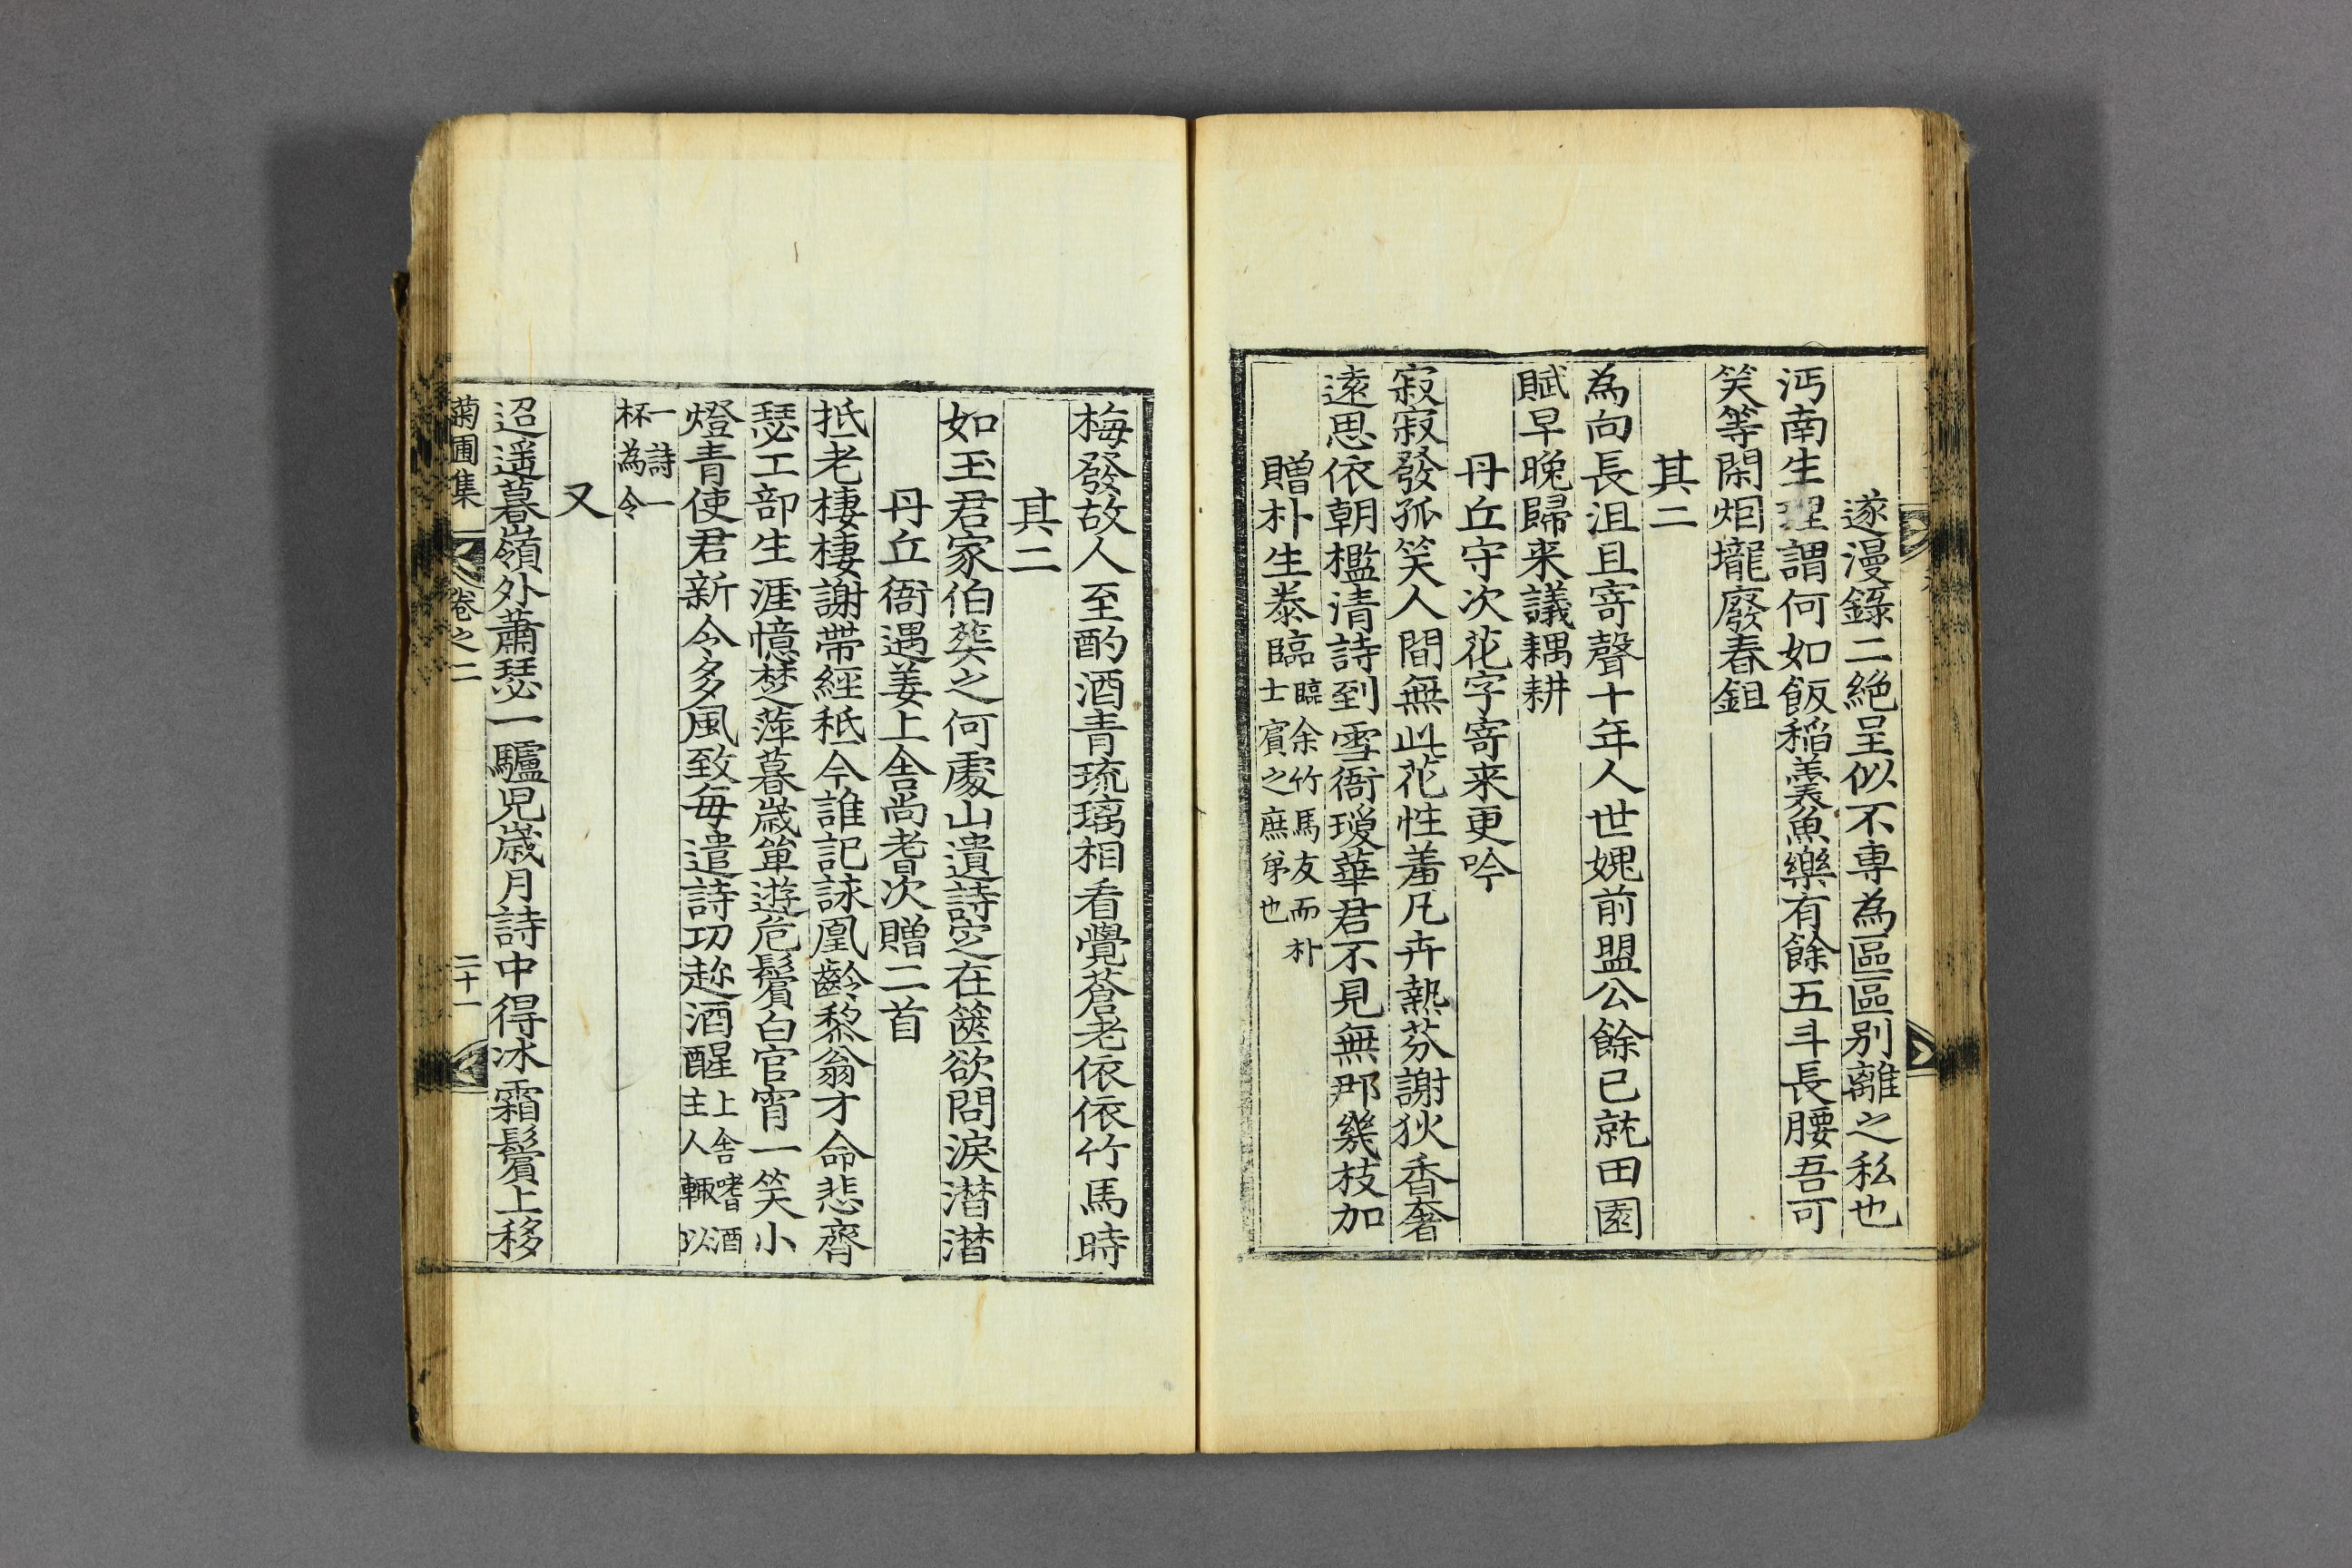 遂漫錄二絶呈似不専為區區别離之私也
沔南生理謂何如飯稲羹魚樂有餘五斗長腰吾可
笑等閑烟壠廢春鉏
其二
為向長沮且寄聲十年人世媿前盟公餘已就田園
賦早晚歸来議耦耕
丹丘守次花字寄来更吟
寂寂發孤笑人間無此花性羞凡卉熱芬謝狄香奢
遠思依朝檻清詩到雪衙瑷華君不見無那幾枝加
贈朴生泰臨臨余竹馬友而朴
士賔之庶弟也
梅發故人至酌酒青琉璃相看覺蒼老依依竹馬時
其二
如玉君家伯葬之何處山遺詩定在篋欲問淚潸潸
丹丘衙遇姜上舍尚耆次贈二首
抵老棲棲謝帶經秖今誰記詠凰齡黎翁才命悲齊
瑟工部生涯憶楚萍暮歲箪遊危鬢白官宵一笑小
燈青使君新令多風致每遣詩功趂酒醒上舍嗜酒
主人輒以
一詩一
杯為令
又
迢遥暮嶺外蕭瑟一驢兒歲月詩中得冰霜鬢上移
菊圃集 卷之二 二十一